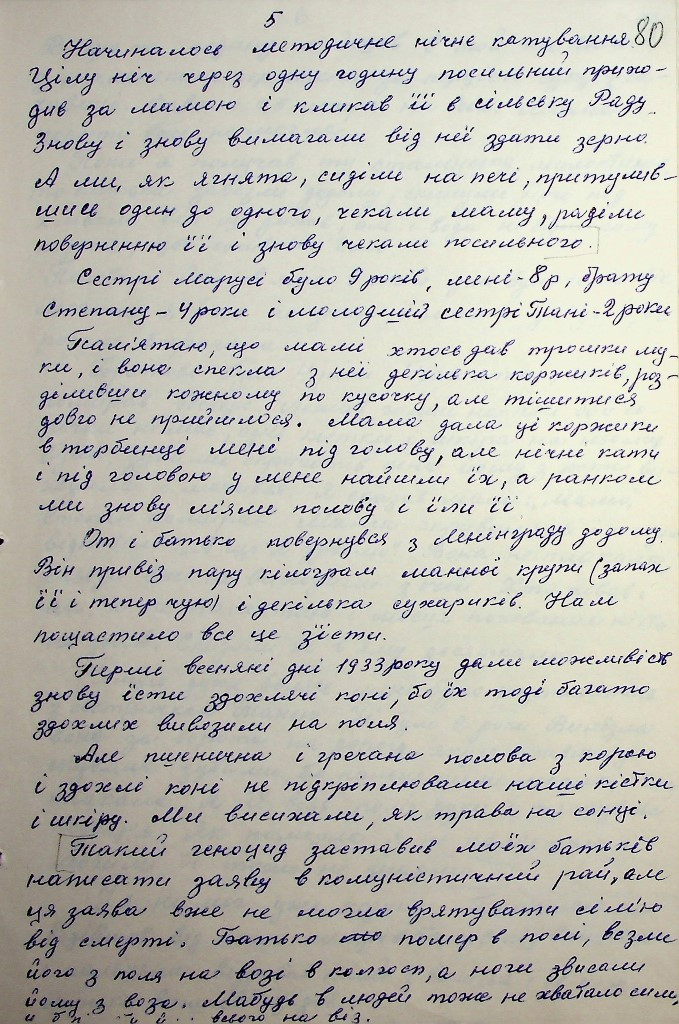 5
80
Начиналось методичне нічне катування.
Цілу ніч через одну годину посильний прихо-
див за мамою і кликав її в сільську Раду.
Знову і знову вимагали від неї здати зерно.
А ми, як ягнята, сиділи на печі, притулив-
шись один до одного, чекали маму, раділи
поверненню її і знову чекали посильного.
Сестрі Марусі було 9 років, мені - 8 р, брату
Степану - 4 роки і молодшій сестрі Тані - 2 роки
Пам'ятаю, що мамі хтось дав трошки му-
ки, і вона спекла з неї декілька коржиків, роз-
діливши кожному по кусочку, але тішитися
довго не прийшлося. Мама дала ці коржики
в торбинці мені під голову, але нічні кати
і під головою у мене найшли їх, а ранком
ми знову м'яли полову і їли її
От і батько повернувся з Ленінграду додому.
Він привіз пару кілограм манної крупи (запах
її і тепер чую) і декілька сухариків. Нам
пощастило все це з'їсти.
Перші весняні дні 1933 року дали можливість
знову їсти здохлячі коні, бо їх тоді багато
здохлих вивозили на поля.
Але пшенична і гречана полова з корою
і здохлі коні не підкріплювали наші кістки
і шкіру. Ми висихали, як трава на сонці.
Такий геноцид заставив моїх батьків
написати заяву в комуністичний рай, але
ця заява вже не могла врятувати сім'ю
від смерті. Батько помер в полі, везли
його з поля на возі в колгосп, а ноги звисали
йому з воза. Мабудь в людей тоже не хватало сили,
всього на віз.